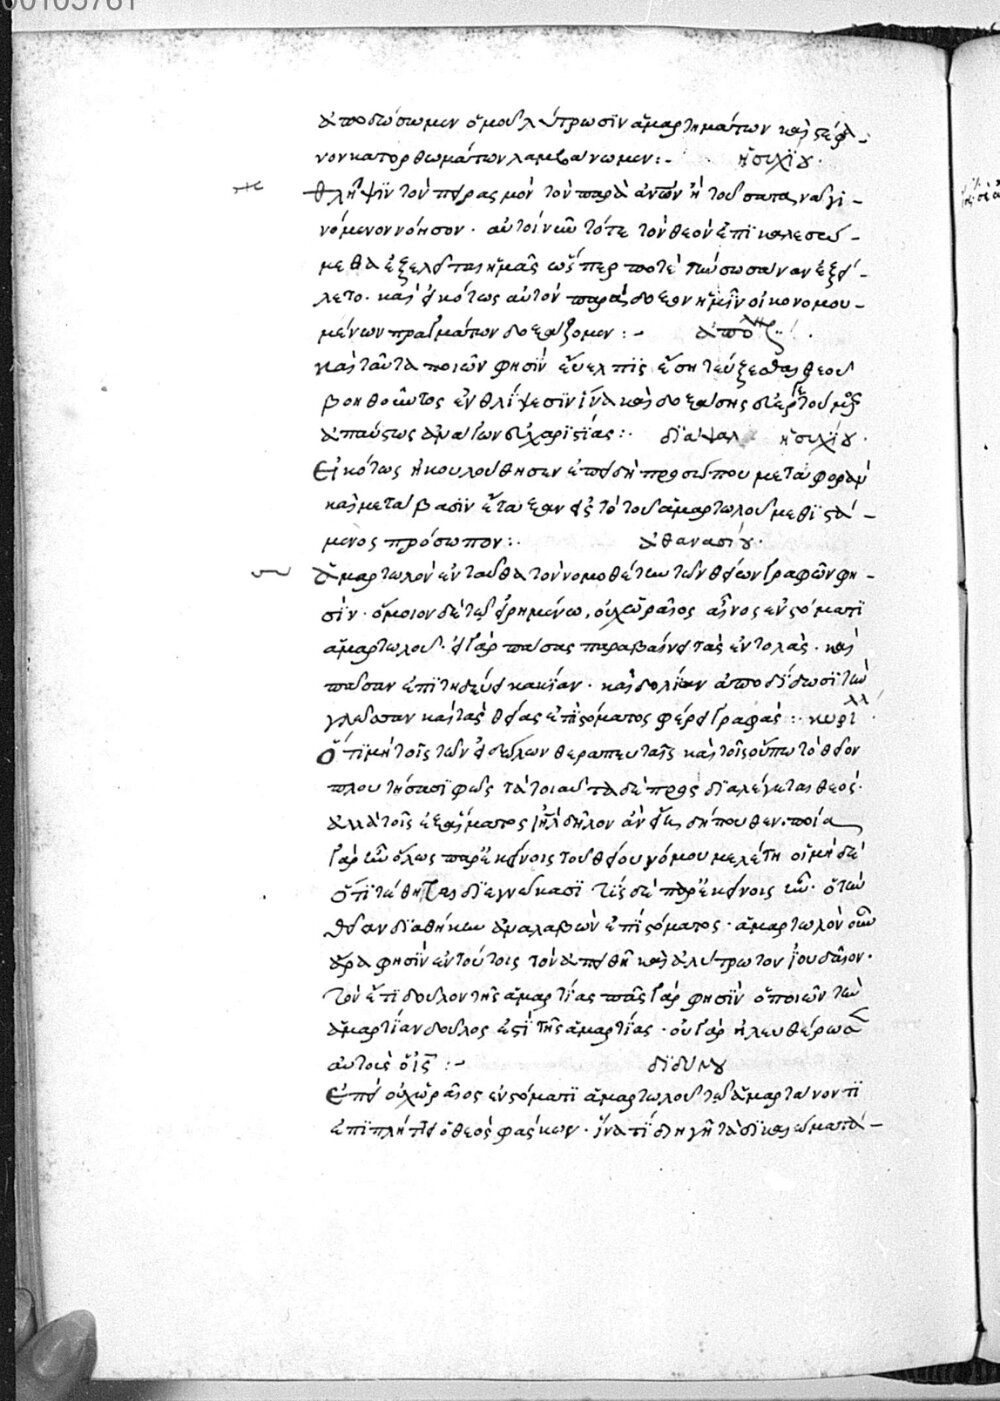 00105761
ἀποδώσωμεν ὁμοῦ λύτρωσϊν ἁμαρτημάτων καὶ στέφα-
νον κατορθωμάτων λαμβάνωμεν :- ἡσιχΐου·
θλῆψϊν τὸν πειρασμὸν τὸν παρὰ ἀνων ἢ τοῦ σατανᾶ γι-
νόμενον νόησον· αὐτοί νῦν τότε τὸν θεὸν ἐπϊκαλεσώ-
μεθα ἐξελεῖται ἡμᾶς ὥσπερ ποτὲ
λετο· καὶ εἰκότως αὐτὸν παράδοξον ἡμῖν οἰκονομου-
μένων πραγμάτων δοξάζομεν :-
καὶ ταῦτα ποιῶν φησὶν εὔελπϊς ἔση τεύξεσθαι θεοῦ
βοηθοῦντος ἐν θλίψεσϊν ἵνα καὶ δοξάσης
ἀπαύστως εὐχαρϊστίας :· δϊάψαλ ἡσιχΐου·
Εἰκότως ἠκουλούθησεν ἐπειδὴ προσώπου μεταφορὰν
καὶ μετάβασϊν ἔταξεν εἰς τὸ τοῦ ἁμαρτωλοῦ μεθϊστά-
μενος πρόσωπον :· ἀθανασίου·
ἁμαρτωλὸν ἐνταῦθα τὸν νομοθέτην τῶν θείων γραφῶν φη-
σὶν· ὅμοιον δὲ τῷ εἰρημένω, οὐχ ὡραῖος αἶνος ἐν στόματϊ
ἁμαρτωλοῦ· εἰ γὰρ πάσας παραβαίνει τὰς ἐντολὰς· καὶ
πᾶσαν ἐπϊτηδεύει κακΐαν· καὶ δολίαν ἀποδίδωσϊ τὴν
γλῶσσαν καὶ τὰς θείας ἐπὶ στόματος φέρει γραφάς :· κυρΐλλ·
Ὅτϊ μὴ τοῖς τῶν εἰδώλων θεραπευταῖς καὶ τοῖς οὔπω τὸ θεῖον
πλουτήσασϊ φῶς τὰ τοιαῦτα δὲ πρὸς δϊαλέγεται θεός·
ἀλλὰ τοῖς ἐξ αἵματος ἰηλ δῆλον ἂν εἴη δήπουθεν· ποία
γὰρ ἦν ὅλως παρ' ἐκείνοις τοῦ θείου νόμου μελέτη οἳ μὴ δὲ
ὅτϊ τέθηται δϊεγνώκασϊ τίς δὲ παρ' ἐκείνοις ἦν· ὁ τὴν
θείαν δϊαθήκην ἀναλαβὼν ἐπὶ στόματος· ἁμαρτωλὸν οὖν
ἄρα φησὶν ἐν τούτοις τὸν ἀπειθῆ καὶ ἀλύτρωτον ἰουδαῖον·
τὸν ἔτϊ δοῦλον τῆς ἁμαρτίας πᾶς γάρ φησϊν ὁ ποιῶν τὴν
ἁμαρτΐαν δοῦλος ἐστϊ τῆς ἁμαρτίας· οὐ γὰρ ἠλευθέρωσ
αὐτοὺς ὁ ις :- δϊδύμου
Ἐπεὶ οὐχ ὡραῖος ἐν στόματϊ ἁμαρτωλοῦ τῷ ἁμαρτάνοντϊ
ἐπϊπλήττει ὁ θεὸς φάσκων· ἵνα τί διηγῆ τὰ δϊκαιώματά-